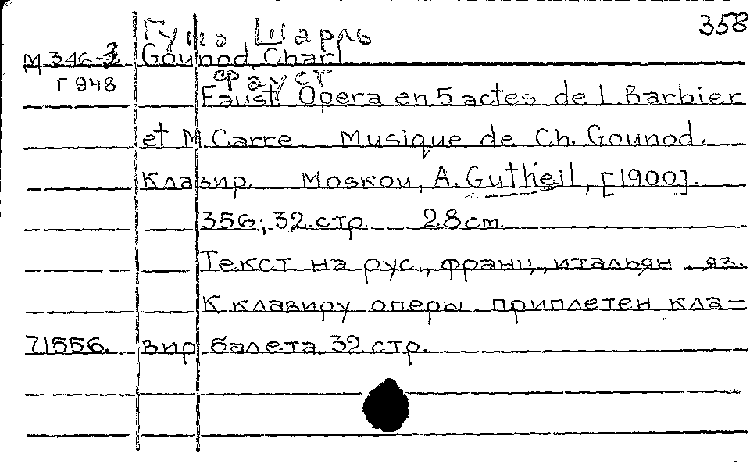 358
Гуно Шарль
М 346-3 Gounod Charl
Г 948 Фауст
Faust. Opera en 5 actes de L. Barbier
et M. Carre Musique de Ch. Gounod.
Клавир. Moskou, A. Gutheil, [1900].
356; 32 стр 28 cm
Текст на рус., франц., итальян. яз.
К клавиру оперы приплетен кла-
71556. вир балета 32 стр.